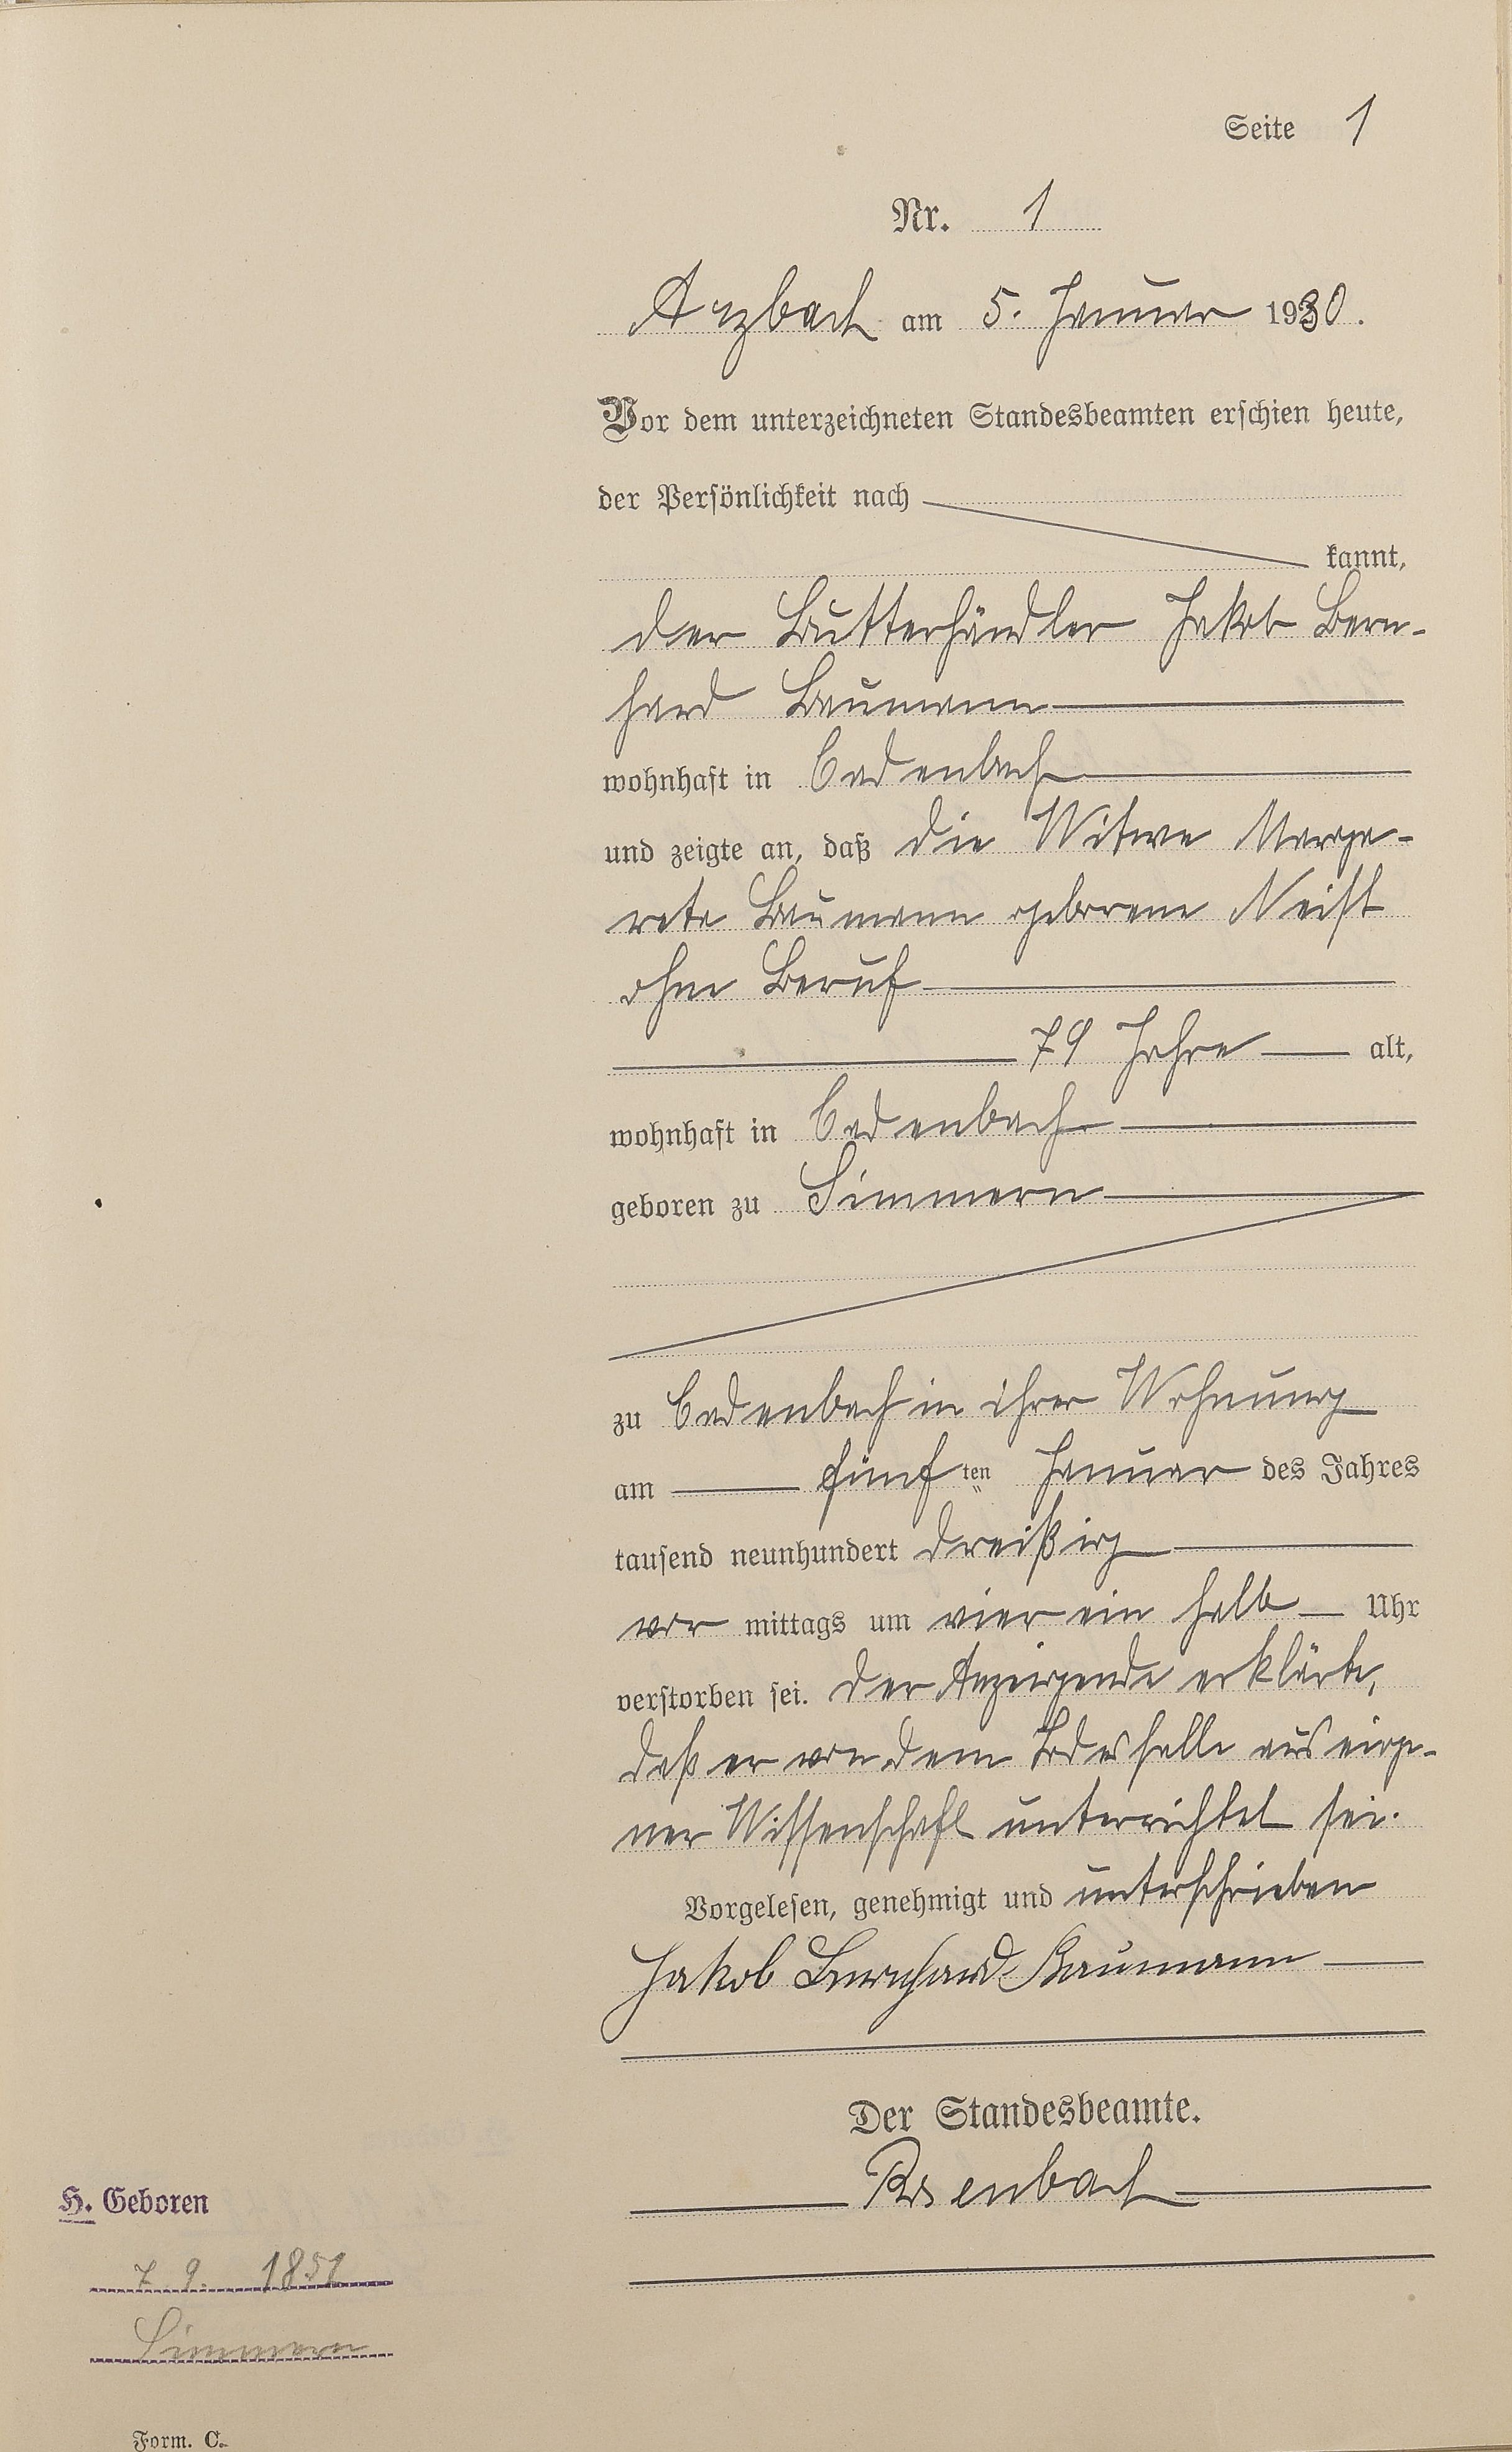 Seite 1
Nr. 1
Arzbach am 5. Januar 1930.
Vor dem unterzeichneten Standesbeamten erschien heute,
der Persönlichkeit nach
kannt,
der Butterhändler Jakob Bern-
hard Baumann
wohnhaft in Cadenbach
und zeigte an, daß die Witwe Marga-
rete Baumann geborene Neist
ohne Beruf
79 Jahre alt,
wohnhaft in Cadenbach
geboren zu Simmern
zu Cadenbach in ihrer Wohnung
am fünf ten Januar des Jahres
tausend neunhundert dreißig
vor mittags um vier ein halb Uhr
verstorben sei. Der Anzeigende erklärte,
daß er von dem Todesfalle aus eige-
ner Wissenschaft unterrichtet sei.
Vorgelesen, genehmigt und unterschrieben
Jakob Bernhard Baumann
Der Standesbeamte.
Rosenbach
H. Geboren
7 9. 1851
Simmern
Form. C.